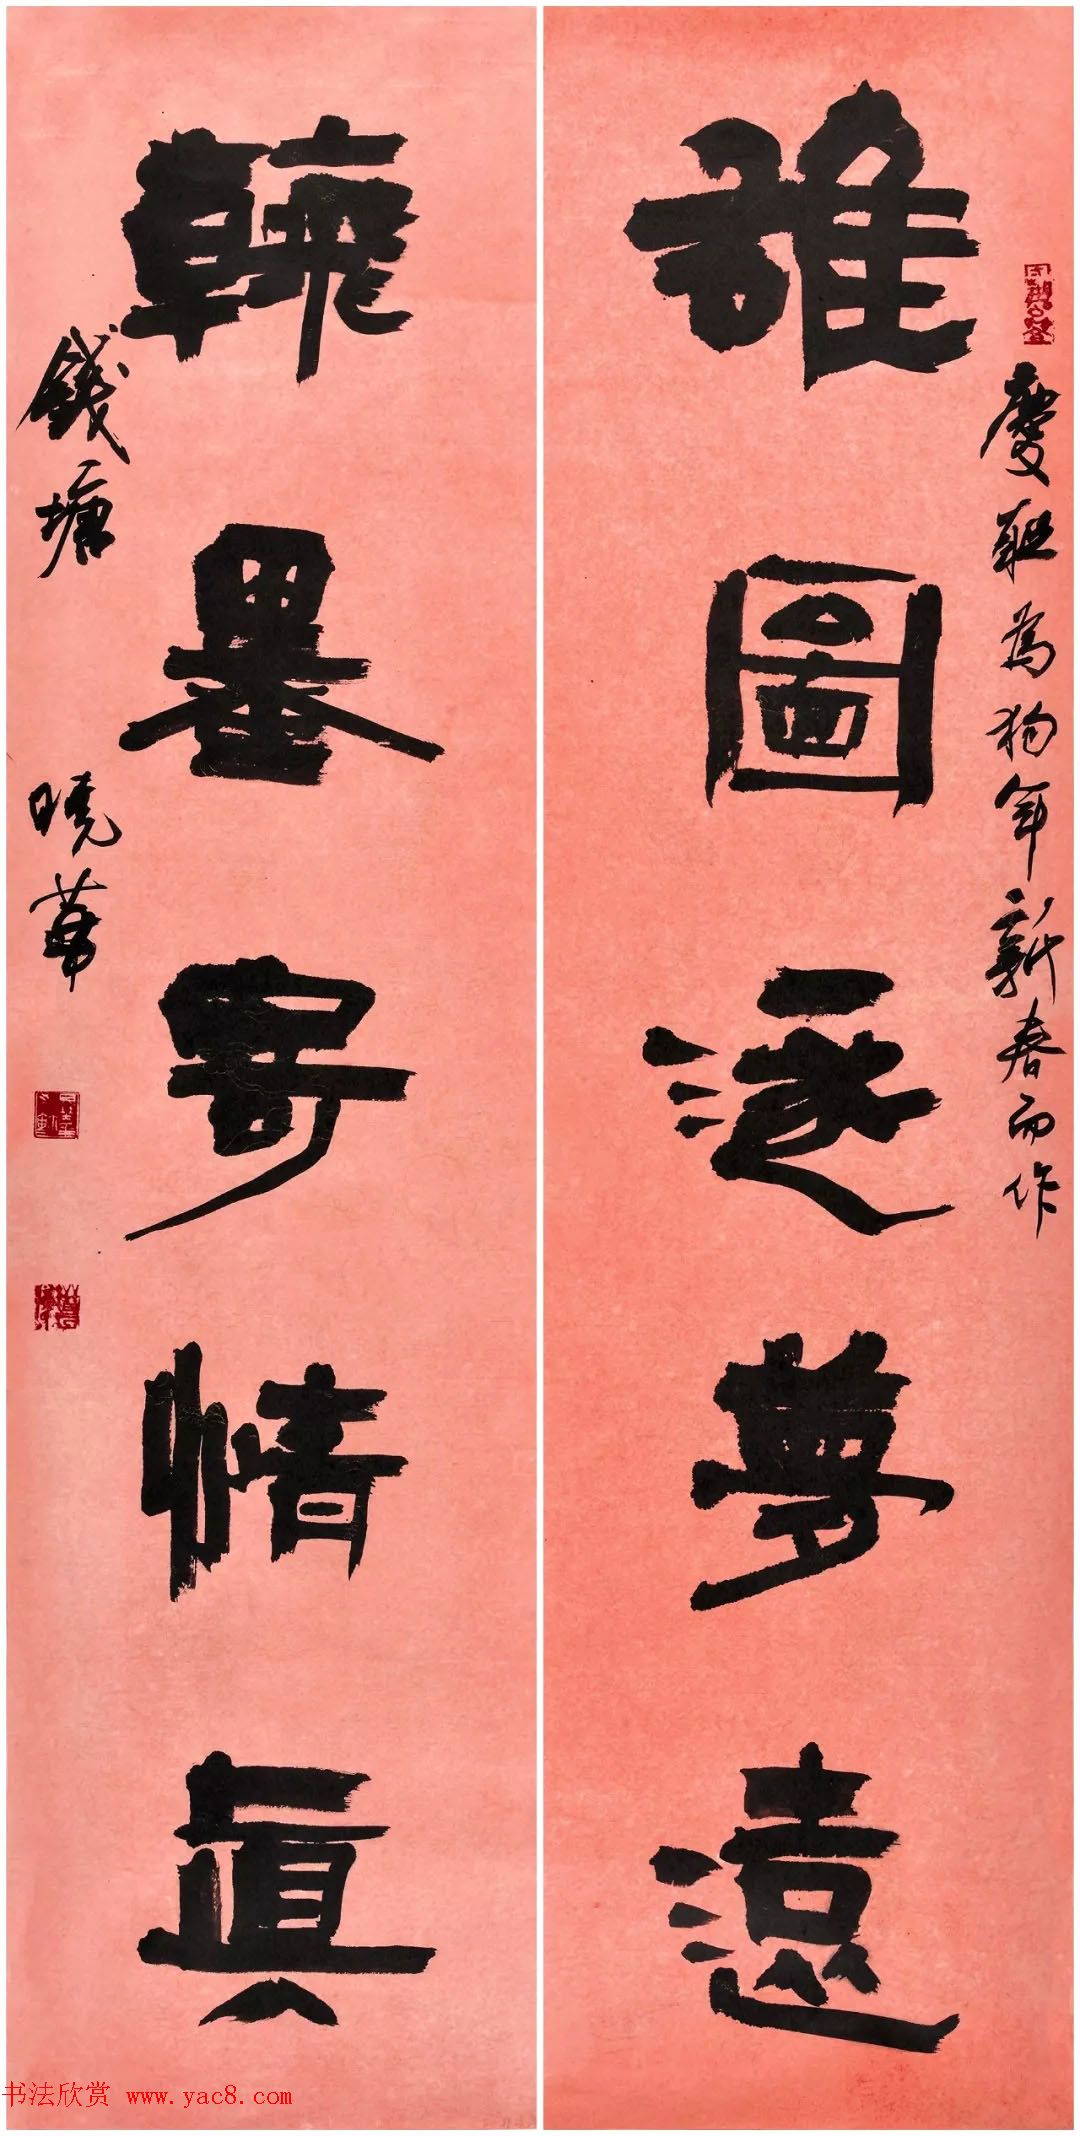 雄圖逐夢遠
慶聯為狗年新春而作
翰墨寄情真
錢塘
曉華
书法欣赏 www.yac8.com